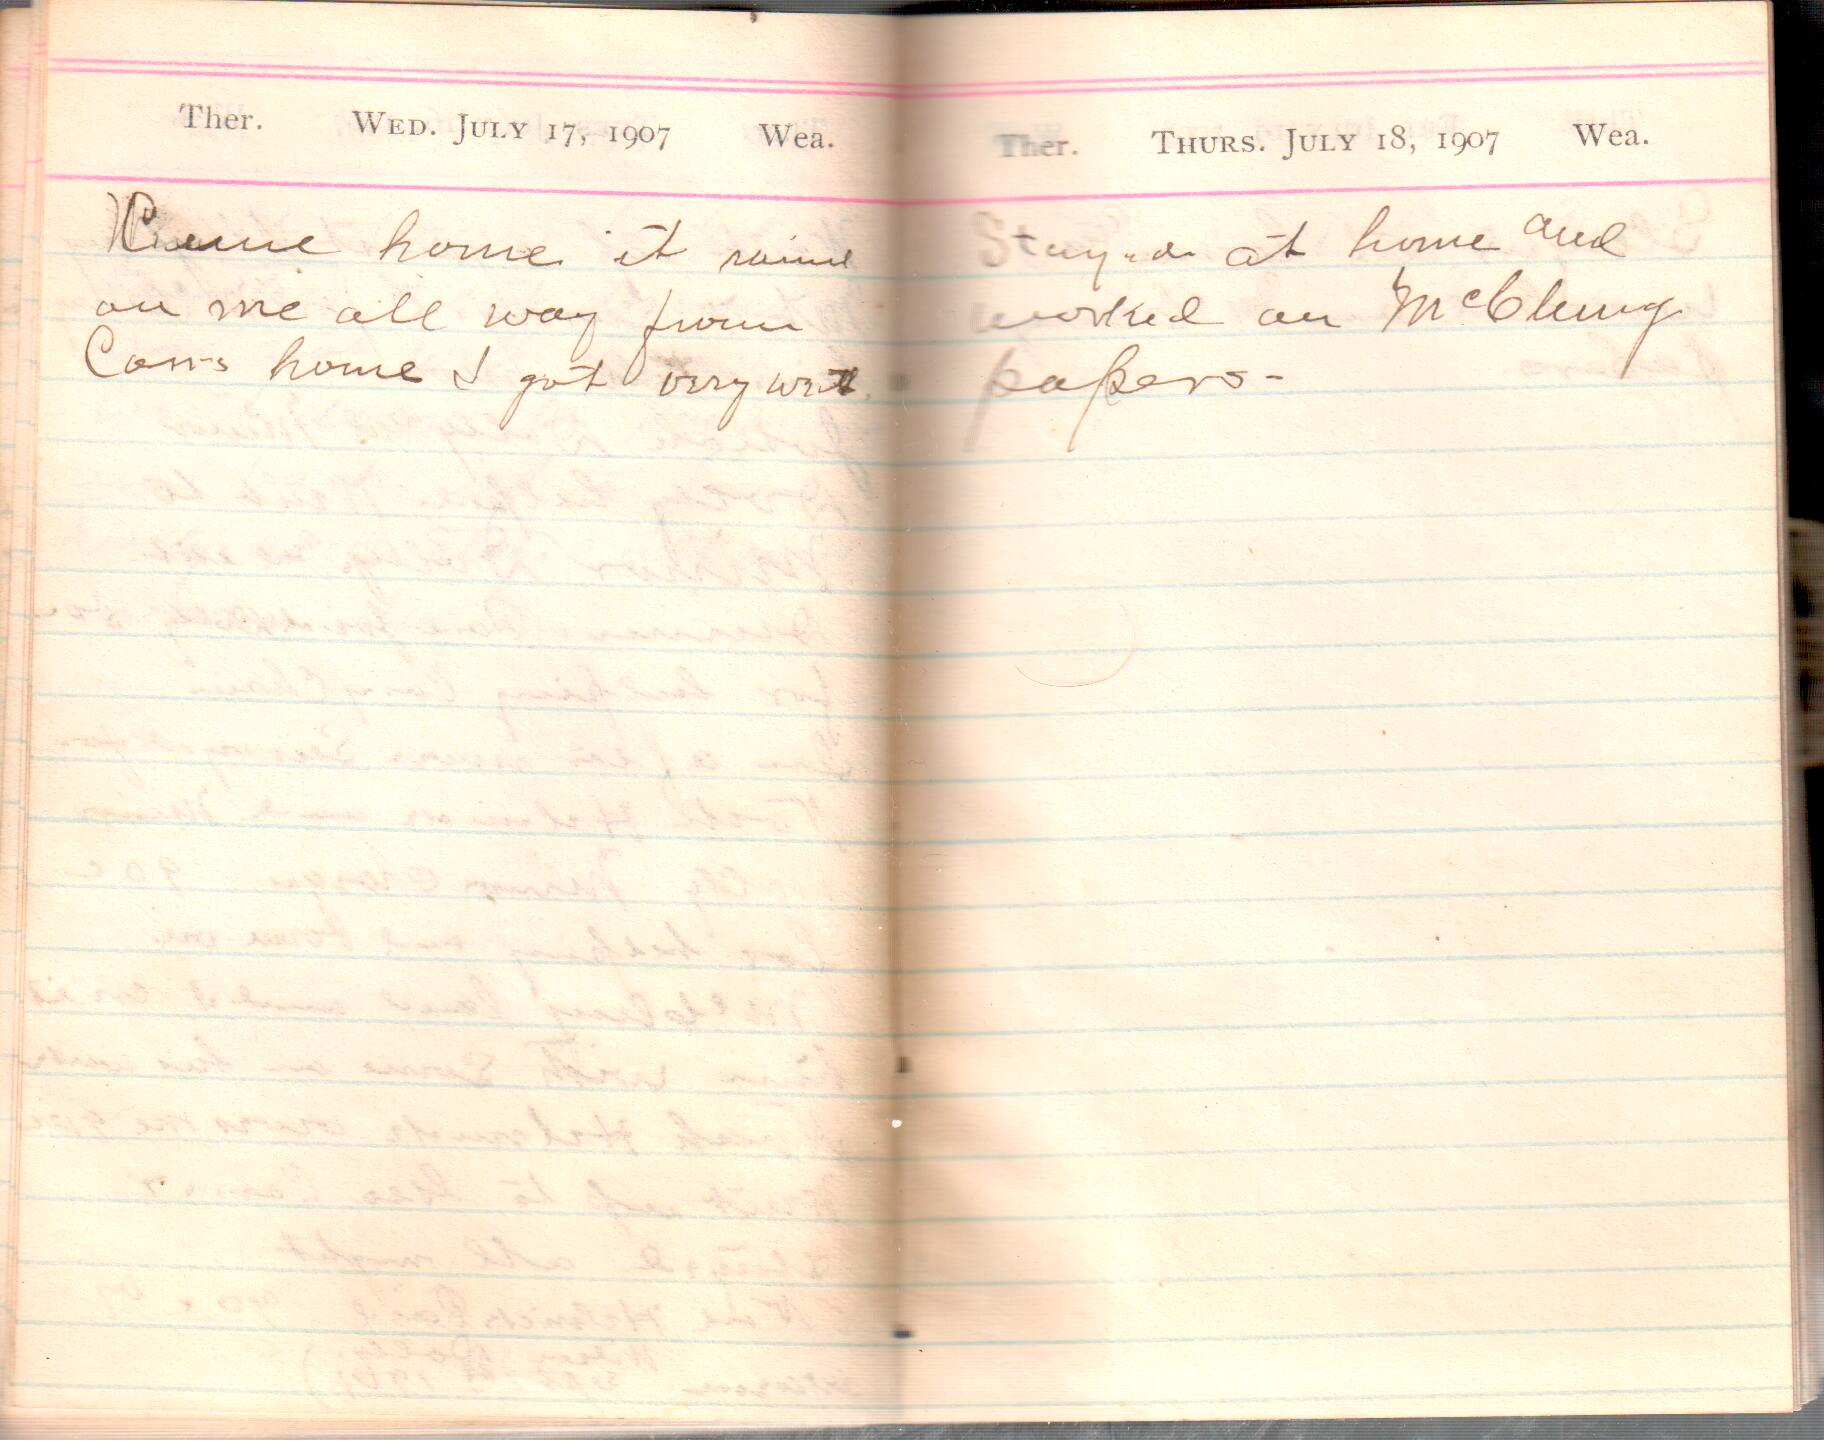 Ther. WED. JULY 17, 1907 Wea.
Came home it raind
on me all way from
home I got very wett.
Ther. THURS. JULY 18, 1907 Wea.
Stayed at home and
worked on McClung
papers-